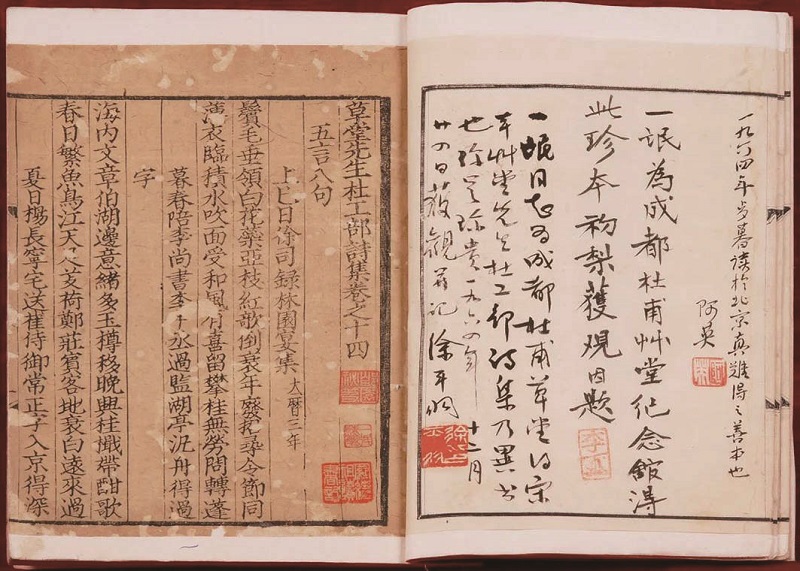 一九六四年岁暮读於北京真難得之善本也
阿英
一氓為成都杜甫艸堂纪念館得
此珍本初梨獲观因题
一氓同志为成都杜甫草堂得宋
本艸堂先生杜工部诗集乃異书
也 珍贵一九六四年十二月
廿四日获觀并记徐平羽
草堂先生杜工部詩集卷之十四
五言八句
上巳日徐司録林園宴集 大曆三年
鬢毛垂領白花蘂亞枝紅歌倒衰年廢招尋令節同
薄衣臨積水吹面受和風有喜留攀桂無勞問轉蓬
暮春陪李尚書李中丞過監湖亭汎舟得過
字
海内文章伯湖邊意緒多玉樽移晚興桂檝帶酣歌
春日繁魚鳥江天足芰荷鄭莊賓客地衰白遠來過
夏日楊長寧宅送崔侍御常正字入京得深